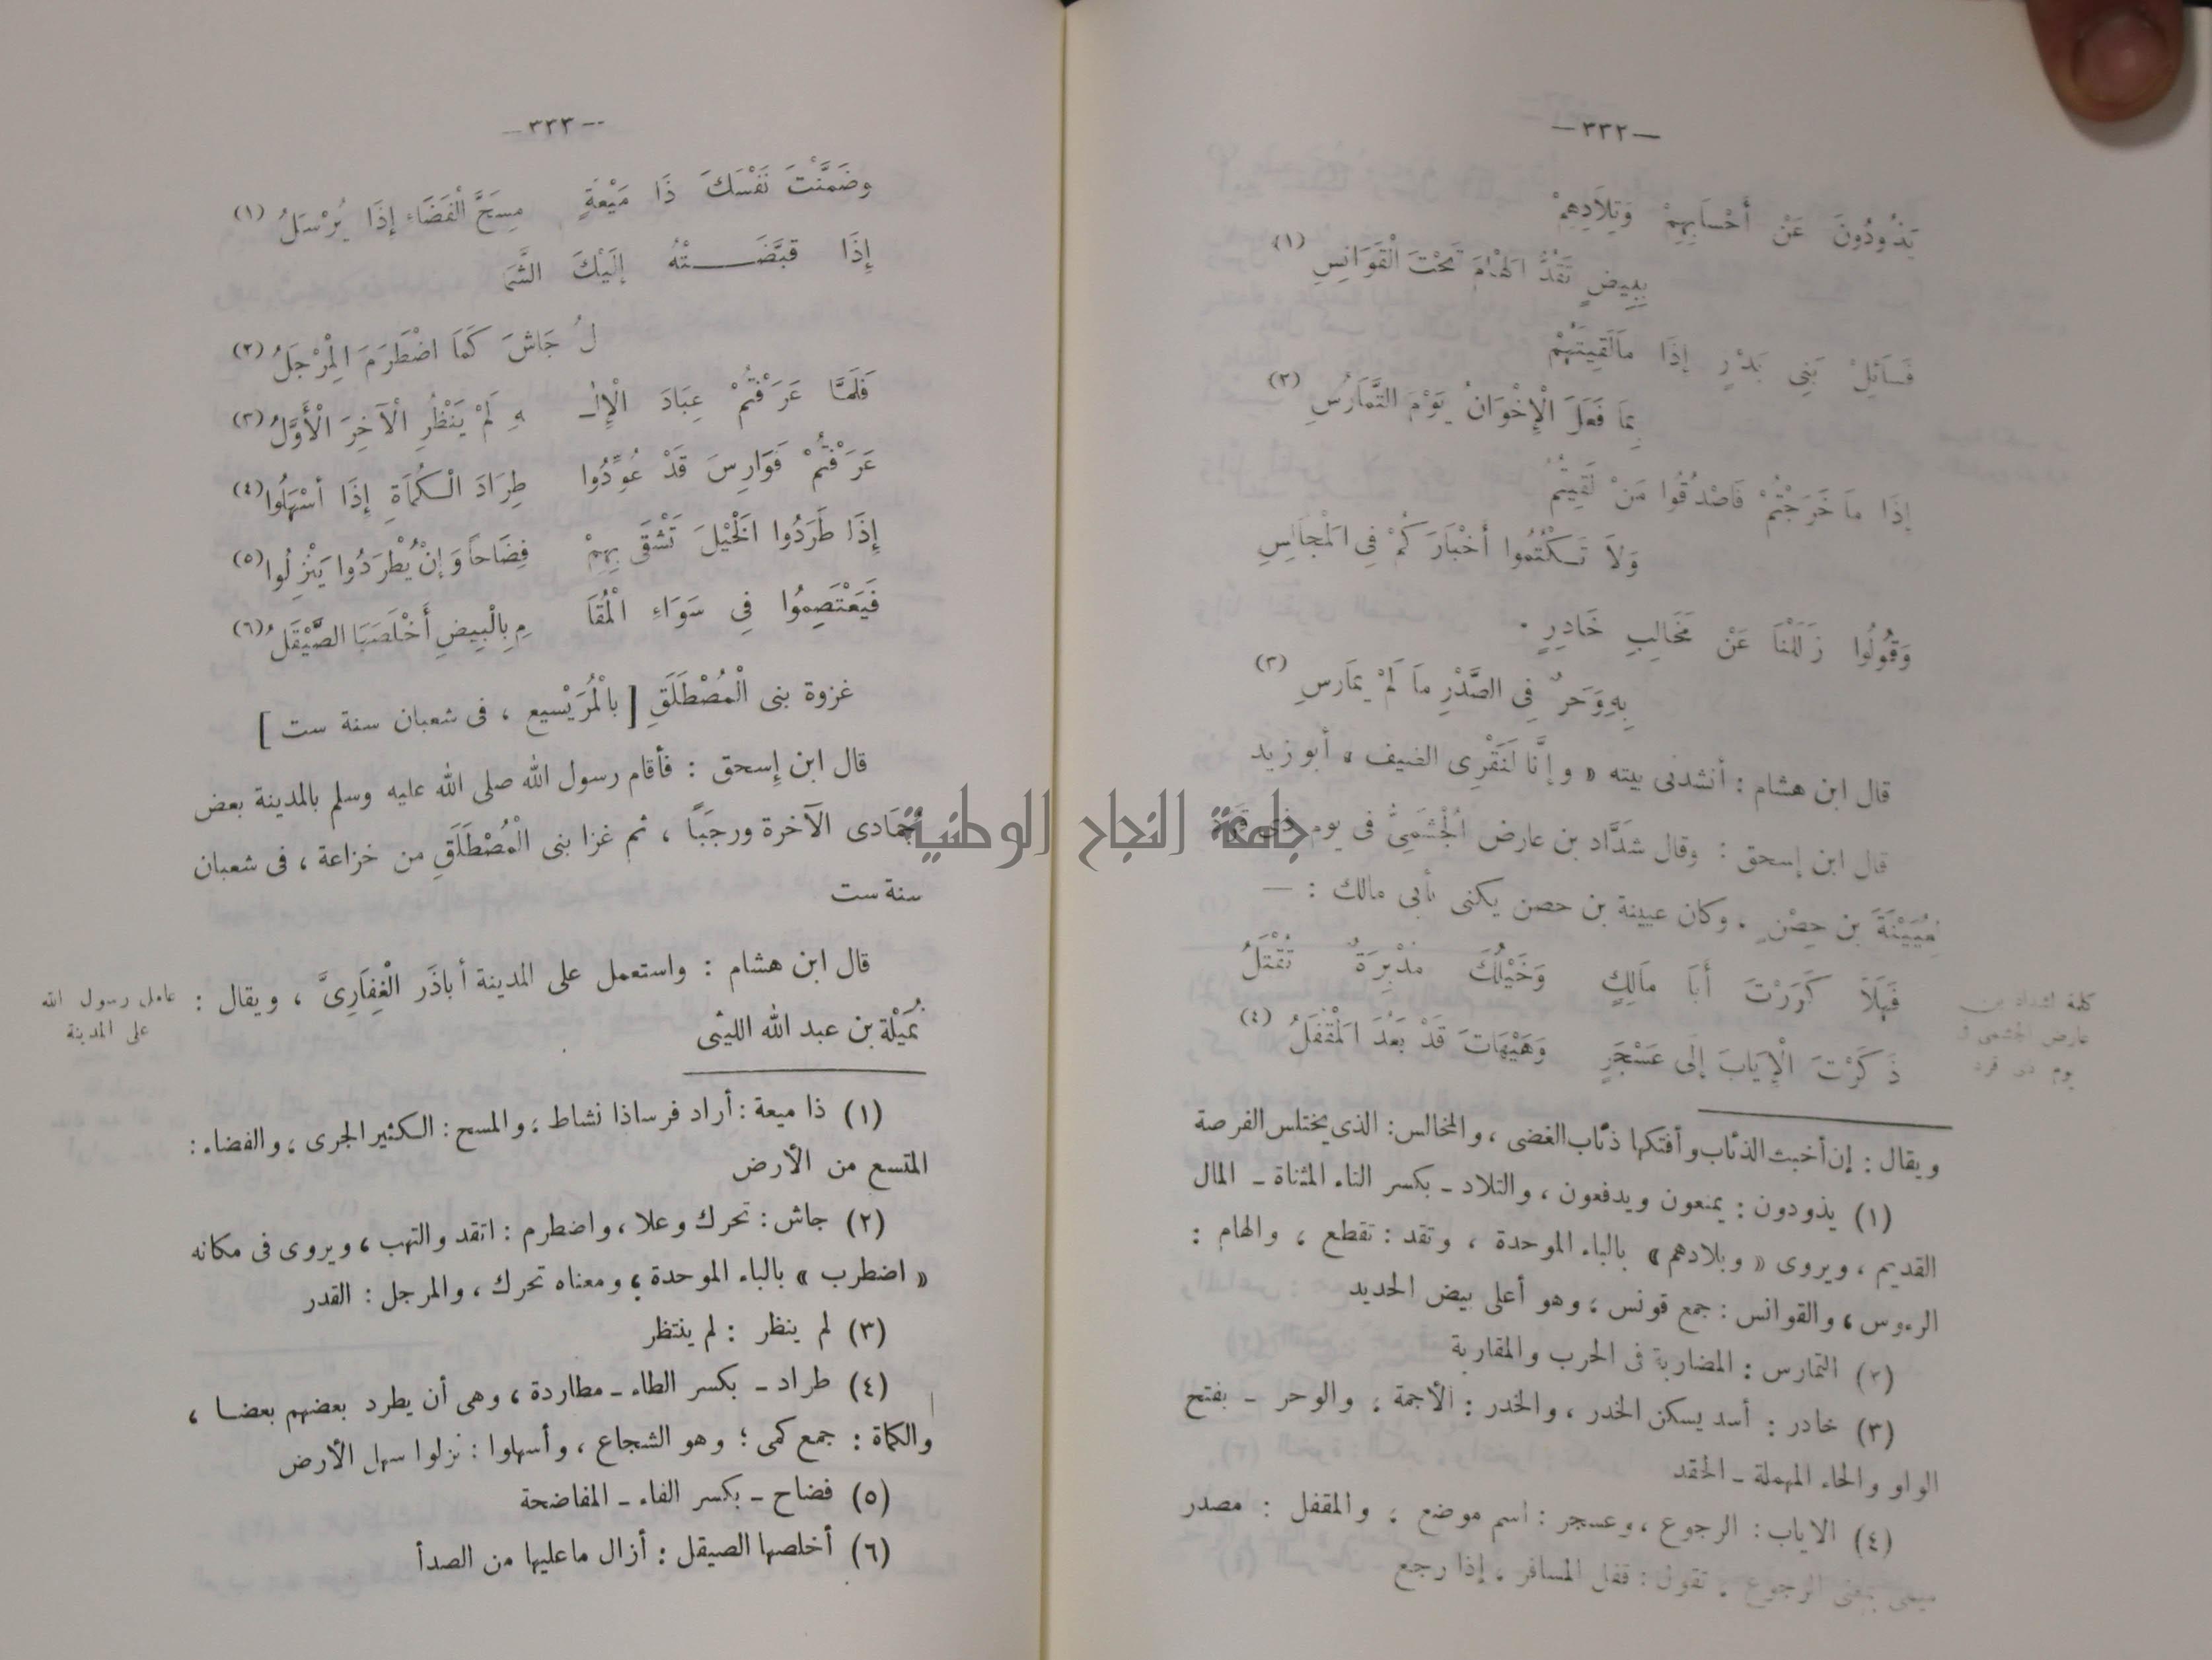 — ٣٣٢ —
يَذُودُونَ عَنْ أَحْسَابِهِمْ وَتِلَادِهِمْ
بِبِيضٍ تَقُدُّ الْهَامَ تَحْتَ الْقَوَانِسِ (١)
فَسَائِلْ بَنِي بَدْرٍ إِذَا مَا لَقِيتَهُمْ
بِمَا فَعَلَ الْإِخْوَانُ يَوْمَ التَّمَارُسِ (٢)
إِذَا مَا خَرَجْتُمْ فَاصْدُقُوا مَنْ لَقِيتُمُ
وَلَا تَكْتُمُوا أَخْبَارَكُمْ فِي الْمَجَالِسِ
وَقُولُوا زَلَلْنَا عَنْ مَخَالِبِ خَادِرٍ .
بِهِ وَحَرٌ فِي الصَّدْرِ مَا لَمْ يُمَارِسِ (٣)
قال ابن هشام : أنشدنى بيته « وإنَّا لَنَقْرِى الضيف » أبو زيد
قال ابن إسحق : وقال شدَّاد بن عارض الْجُشَمِىُّ فى يوم ذى قَرَدٍ
لِعُيَيْنَةَ بن حِصْنٍ . وكان عيينة بن حصن يكنى بأبى مالك : —
فَهَلَّا كَرَرْتَ أَبَا مَالِكٍ وَخَيْلُكَ مُدْبِرَةٌ تُقْتَلُ
ذَكَرْتَ الْإِيَابَ إِلَى عَسْجَرٍ وَهَيْهَاتَ قَدْ بَعُدَ الْمَقْفَلُ (٤)
كلمة لشداد بن
عارض الجشمى فى
يوم ذى قرد
ويقال : إن أخبث الذئاب وأفتكها ذئاب الغضى ، والمخالس : الذى يختلس الفرصة
(١) يذودون : يمنعون ويدفعون ، والتلاد ـ بكسر التاء المثناة ـ المال
القديم ، ويروى « وبلادهم » بالباء الموحدة ، وتقد : تقطع ، والهام :
الرءوس ، والقوانس : جمع قونس ؛ وهو أعلى بيض الحديد
(٢) التمارس : المضاربة فى الحرب والمقاربة
(٣) خادر : أسد يسكن الخدر ، والخدر : الأجمة ، والوحر ـ بفتح
الواو والحاء المهملة ـ الحقد
(٤) الاياب : الرجوع ، وعسجر : اسم موضع ، والمقفل : مصدر
ميمى بمعنى الرجوع ، تقول : قفل المسافر ، إذا رجع
— ٣٣٣ —
وضَمَّنْتَ نَفْسَكَ ذَا مَيْعَةٍ مِسَحَّ الْفَضَاءِ إِذَا يُرْسَلُ (١)
إِذَا قَبَّضَـــتْهُ إِلَيْكَ الشَّمَا
لُ جَاشَ كَمَا اضْطَرَمَ الْمِرْجَلُ (٢)
فَلَمَّا عَرَفْتُمْ عِبَادَ الْإِلٰـ ـهِ لَمْ يَنْظُرِ الْآخِرَ الْأَوَّلُ (٣)
عَرَفْتُمْ فَوَارِسَ قَدْ عُوِّدُوا طِرَادَ الْكُمَاةِ إِذَا أَسْهَلُوا (٤)
إِذَا طَرَدُوا الْخَيْلَ تَشْقَى بِهِمْ فِضَاحاً وَإِنْ يُطْرَدُوا يَنْزِلُوا (٥)
فَيَعْتَصِمُوا فِي سَوَاءِ الْمُقَا مِ بِالْبِيضِ أَخْلَصَهَا الصَّيْقَلُ (٦)
غزوة بنى الْمُصْطَلَقِ [ بِالْمُرَيْسِيع ، فى شعبان سنة ست ]
قال ابن إسحق : فأقام رسول الله صلى الله عليه وسلم بالمدينة بعض
جُمَادى الآخرة ورجَباً ، ثم غزا بنى الْمُصْطَلَقِ من خزاعة ، فى شعبان
سنة ست
قال ابن هشام : واستعمل على المدينة أباذَر الْغِفَارِىَّ ، ويقال :
نُمَيْلَة بن عبد الله الليثى
عامل رسول الله
على المدينة
(١) ذا ميعة : أراد فرساذا نشاط ، والمسح : الكثير الجرى ، والفضاء :
المتسع من الأرض
(٢) جاش : تحرك وعلا ، واضطرم : اتقد والتهب ، ويروى فى مكانه
« اضطرب » بالباء الموحدة ، ومعناه تحرك ، والمرجل : القدر
(٣) لم ينظر : لم ينتظر
(٤) طراد ـ بكسر الطاء ـ مطاردة ، وهى أن يطرد بعضهم بعضا ،
والكماة : جمع كمى ؛ وهو الشجاع ، وأسهلوا : نزلوا سهل الأرض
(٥) فضاح ـ بكسر الفاء ـ المفاضحة
(٦) أخلصها الصيقل : أزال ماعليها من الصدأ
جامعة النجاح الوطنية